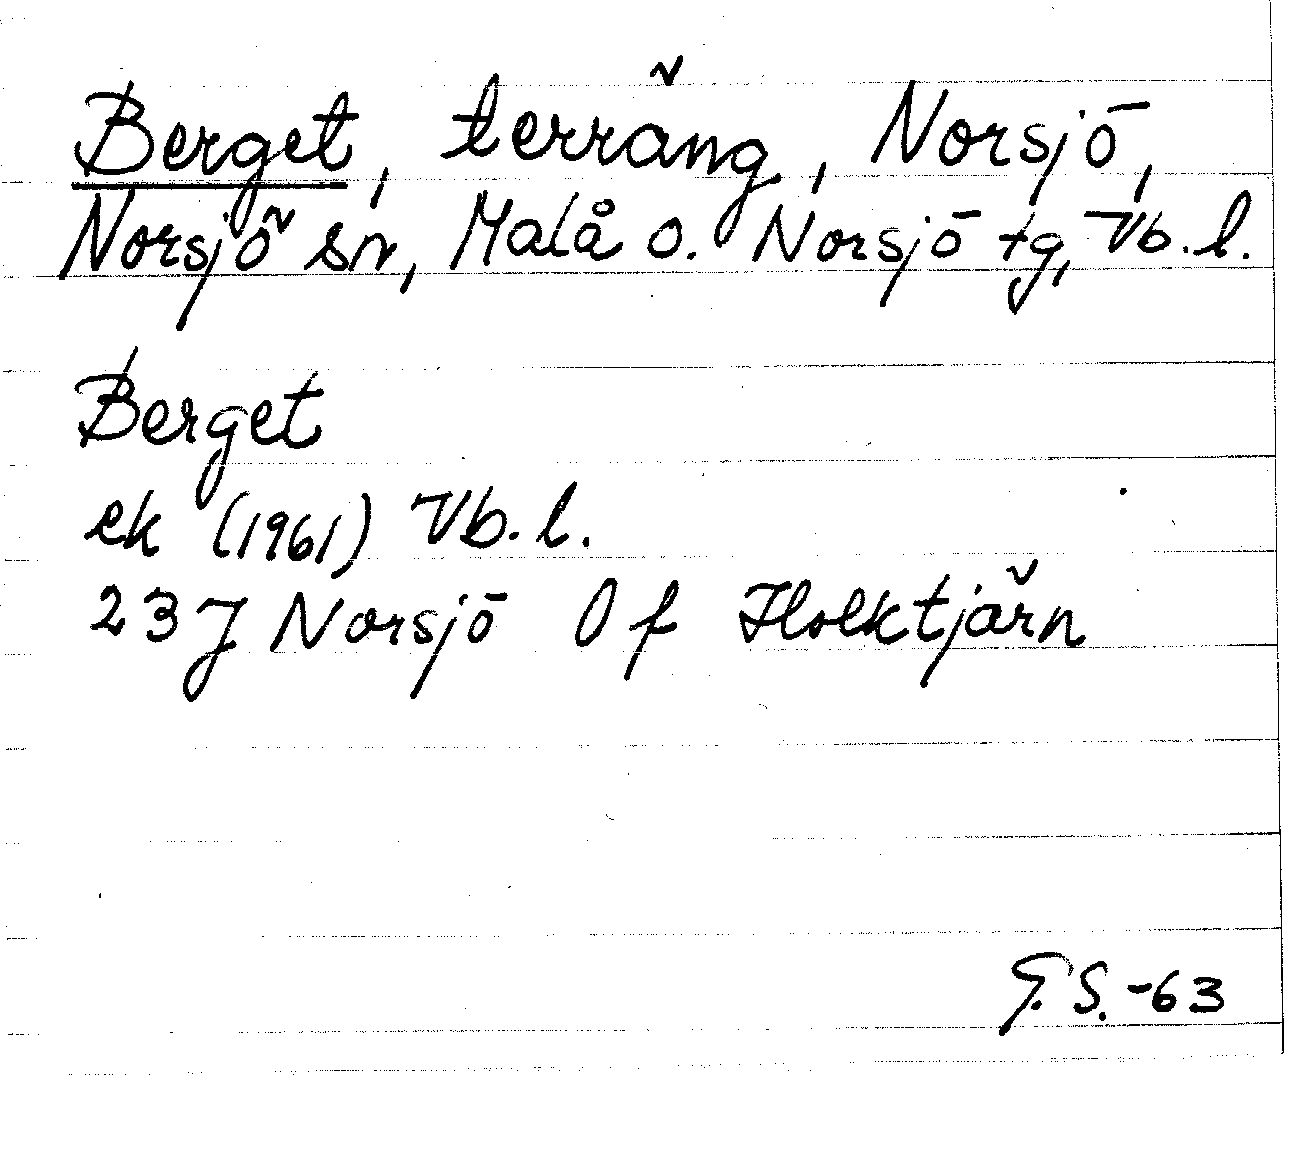 Berget, terräng, Norsjö,
Norsjö sn, Malå o. Norsjö tg, Vb. l.
Berget
ek (1961) Vb. l.
23 J Norsjö 0 f Holktjärn
G. S. -63